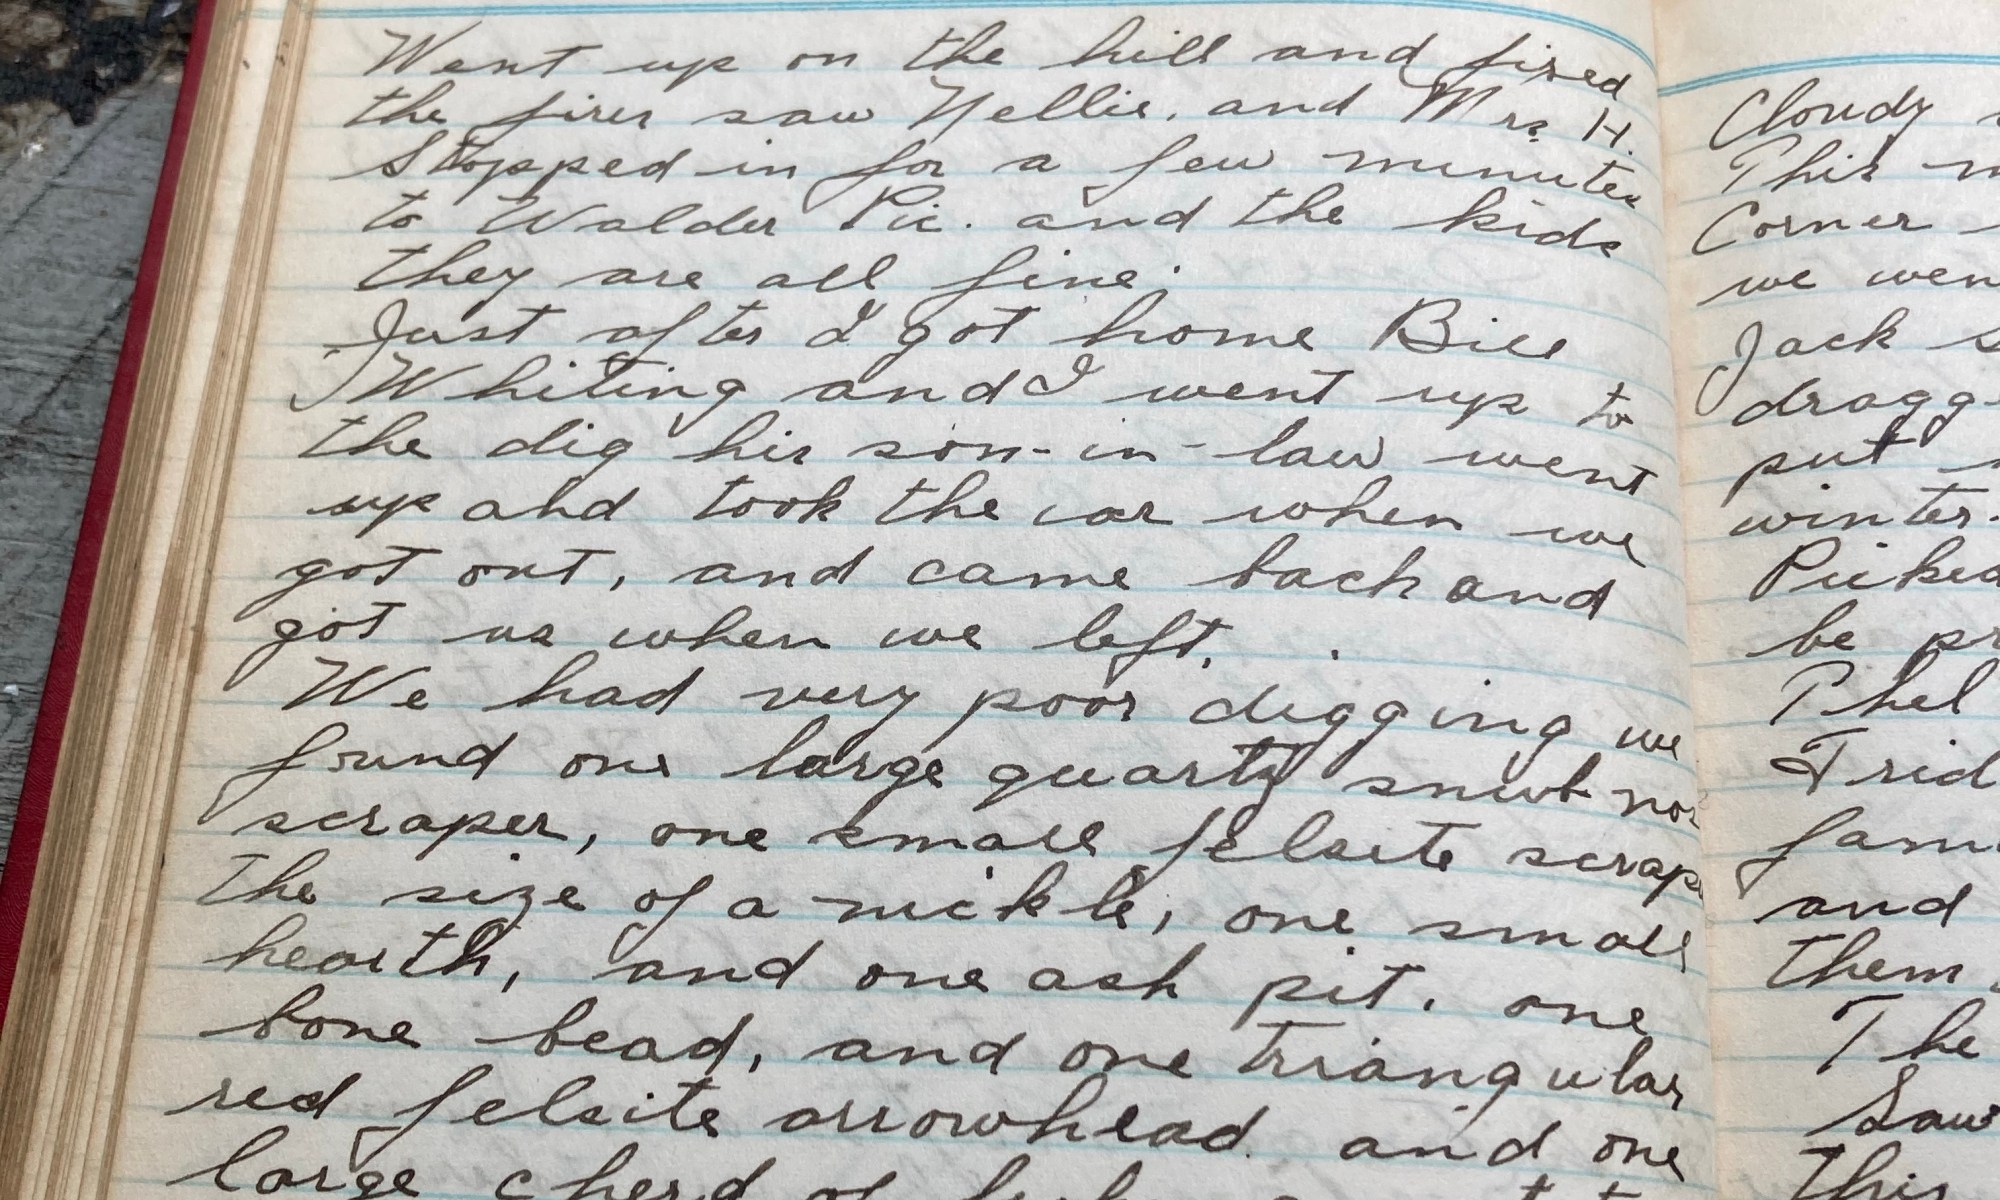 Went up on the hill and fixed
the fires saw Nellie, and Mrs H.
Stopped in for a few minutes
to Walder Pic. and the kids
they are all fine.
Just after I got home Bill
Whiting and I went up to
the dig his son-in-law went
up and took the car when we
got out, and came back and
got us when we left.
We had very poor digging we
found one large quartz snub nos
scraper, one small felsite scrape
the size of a nickle, one small
hearth, and one ash pit, one
bone bead, and one triangular
red felsite arrowhead. and one
large cherd of
Cloudy
This
Corner
we wen
Jack s
dragg
put
winter.
Picked
be pr
Phel
Frid
fam
and
them
The
Saw
This